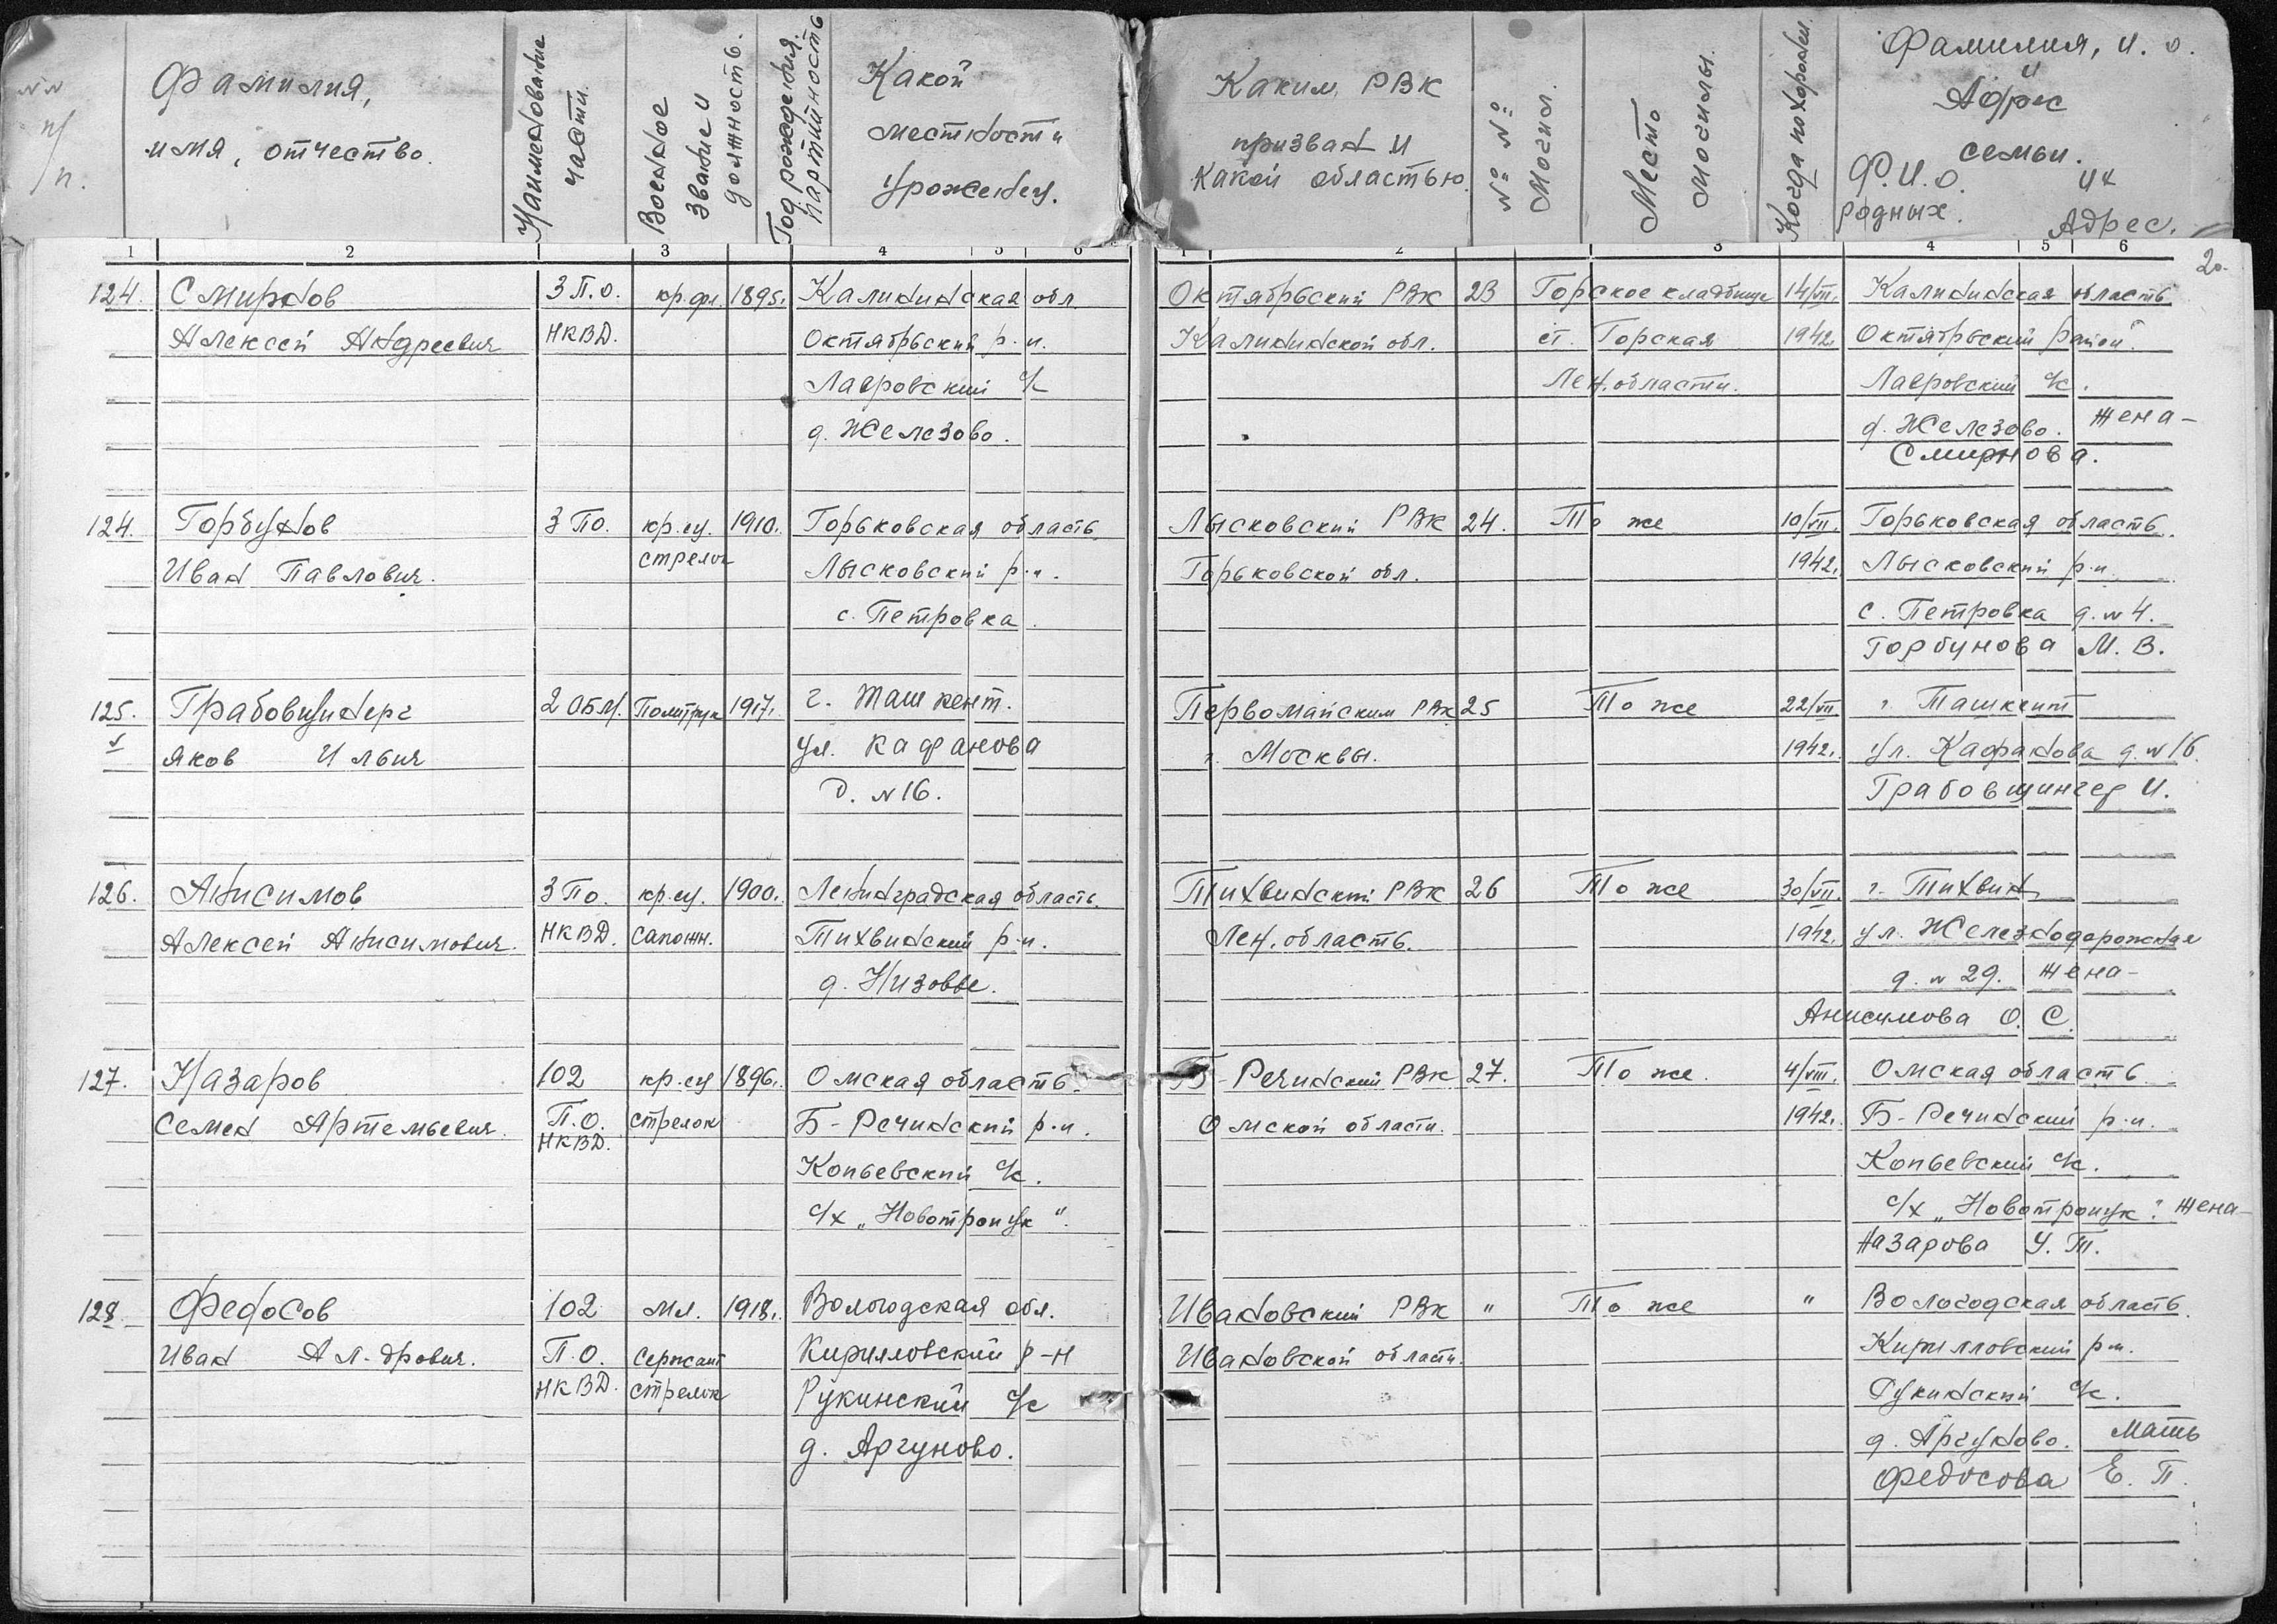 №№ п/п.
Фамилия,
имя, отчество.
Наименование части.
Военное звание и должность.
Год рождения. партийность
Какой
местности
уроженец.
Каким РВК
призван и
какой областью.
№№ №№ Могил.
Место Могилы.
Когда похоронен.
Фамилия, и. о.
и
Адрес
семьи.
Ф.И.О. их
родных. Адрес.
1 2 3 4 5 6
1 2 3 4 5 6
20.
124. Смирнов 3 П.О. 1895. Калининская обл. Октябрьский РВК 23 Горское кладбище 14/VII. Калининская область
Алексей Андреевич НКВД. Октябрьский р-н. Калининской обл. ст. Горская 1942. Октябрьский район.
Лавровский с/с Лен. области. Лавровский с/с.
д. Железово. д. Железово. Жена-
Смирнова.
124. Горбунов 3 ПО. кр-ец. 1910. Горьковская область Лысковский РВК 24. То же 10/VII. Горьковская область.
Иван Павлович. стрелок Лысковский р-н. Горьковской обл. 1942. Лысковский р-н
с. Петровка с. Петровка д. №4.
Горбунова М. В.
125. Грабовщинерг 2 ОБМ. Политрук 1917. г. Ташкент. Первомайским РВК 25 То же 22/VII г. Ташкент
Яков Ильич ул. Кафанова г. Москвы. 1942. ул. Кафанова д. №16.
Д. №16. Грабовщингер И.
126. Анисимов 3 По. кр-ец. 1900. Ленинградская область. Тихвинский РВК 26 То же 30/VII. г. Тихвин
Алексей Анисимович. НКВД. сапожн. Тихвинский р-н. Лен. область. 1942. ул. Железнодорожная
д. Низовье. д. №29. Жена-
Анисимова О. С.
127. Назаров 102 кр-ец 1896. Омская область. Б-Речинский РВК 27. То же. 4/VIII. Омская область
Семен Артемьевич. П.О. стрелок Б-Речинский р-н. Омской области. 1942. Б-Речинский р-н.
НКВД. Копьевский с/с. Копьевский с/с.
с/х „Новотроицк". с/х „Новотроицк". Жена-
Назарова У. Т.
128. Федосов 102 мл. 1918. Вологодская обл. Ивановский РВК " То же " Вологодская область.
Иван Ал-дрович. П.О. сержант Кирилловский р-н Ивановской области. Кирилловский р-н.
НКВД. стрелок Рукинский с/с Рукинский с/с.
д. Аргуново. д. Аргуново. Мать
Федосова Е. П.